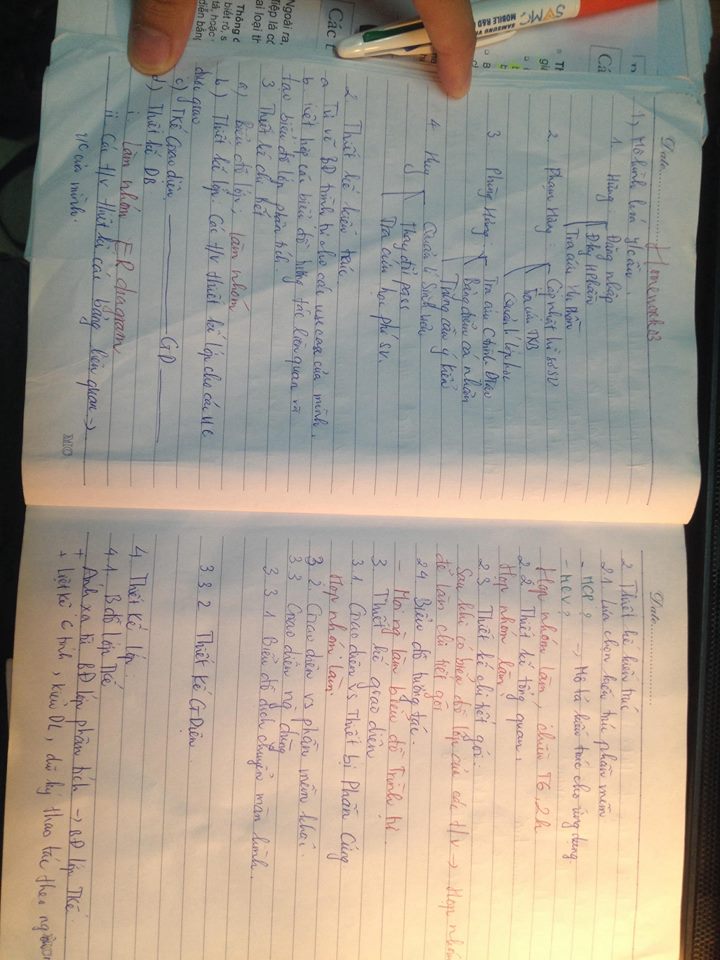 Ngoài ra,
Thông
Các
SVMC
SAMSUNG
MOBILE R&D
Date
Homework3
1, Mô hình hoá y/cầu
1. Hùng
Đăng nhập
Đký HPhần
Tra cứu
2 Phạm Hùng
Cập nhật hồ sơ SV
Tra cứu TKB
Quản lí lớp học
3 Phùng Hùng
Tra cứu C trình Đtạo
Bảng điểm cá nhân
Trưng cầu ý kiến
4 Huy
Quản lí Sinh viên
Thay đổi pass
Tra cứu học phí SV.
2 Thiết kế kiến trúc
a Tự vẽ BĐ trình tự cho các use case của mình.
b. kết hợp các biểu đồ tương tác liên quan và
tạo biểu đồ lớp phân tích.
3 Thiết kế chi tiết
a) Biểu đồ lớp; làm nhóm
b) Thiết kế lớp. Các t/v thiết kế lớp cho các UC
c) TKế Giao diện, GD
d) Thiết kế DB
i làm nhóm ER diagram
ii Các t/v thiết kế các bảng liên quan →
UC của mình.
Date
2 Thiết kế kiến trúc
2.1 Lựa chọn kiến trúc phần mềm
- MCP?
→ Mô tả kiến trúc cho ứng dụng
- MCV?
Họp nhóm làm, chiều T6, 2h
2.2 Thiết kế tổng quan.
Họp nhóm làm
2.3 Thiết kế chi tiết gói.
Sau khi có biểu đồ lớp của các t/v → Họp nhóm
để làm chi tiết gói
2.4 Biểu đồ tương tác.
- Mỗi ng làm biểu đồ Trình tự.
3 Thiết kế giao diện
3.1 Giao diện vs Thiết bị Phần Cứng
Họp nhóm làm
3.2 Giao diện vs phần mềm khác.
3.3 Giao diện ng dùng
3.3.1 Biểu đồ dịch chuyển màn hình.
3.3.2 Thiết kế GDiện
4. Thiết kế lớp.
4.1. B đồ lớp TKế
+ Ánh xạ từ BĐ lớp phân tích → BĐ lớp TKế.
+ Liệt kê C tính, kiểu DL, thao tác theo